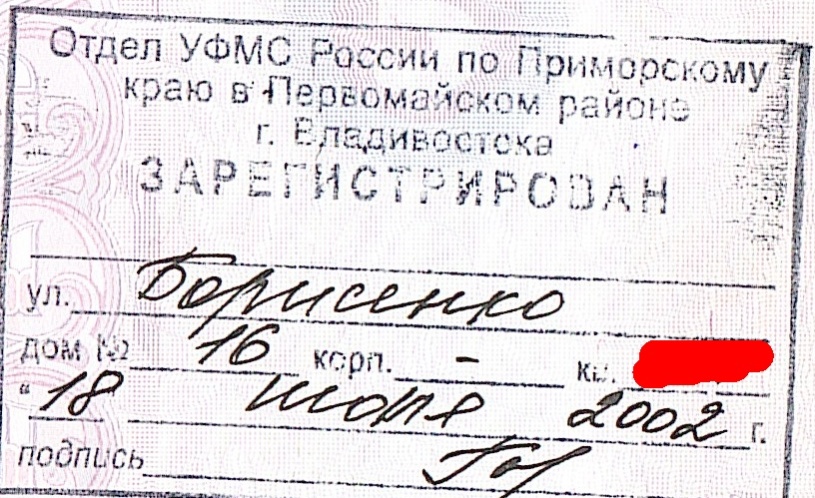 Отдел УФМС России по Приморскому
краю в Первомайском районе
г. Владивостока
ЗАРЕГИСТРИРОВАН
ул. Борисенко
дом № 16 корп. - кв.
"18 июля 2002 г.
подпись